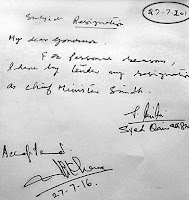 27-7-201
Subject Resignation
My dear Governor.
For personal reasons,
I here by tender my resignation
as Chief Minister Sindh.
Syed Qaim Ali
Accepted.
27.7.16.